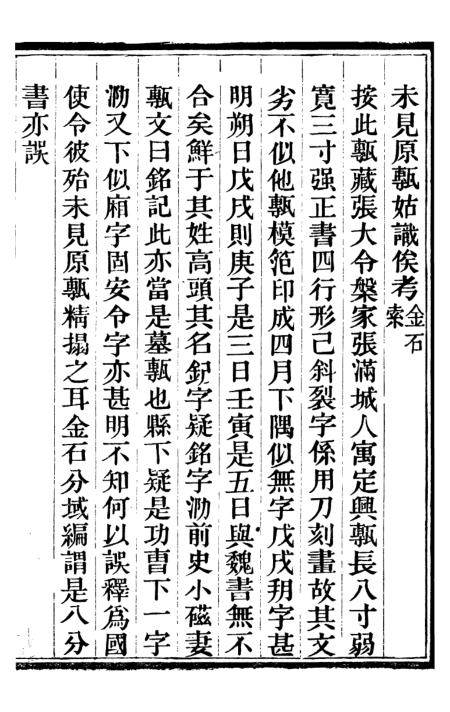 未見原甎姑識俟考金石索
按此甎藏張大令槃家張滿城人寓定興甎長八寸弱
寬三寸强正書四行形已斜裂字係用刀刻畫故其文
劣不似他甎模笵印成四月下隅似無字戊戌朔字甚
明朔日戊戌則庚子是三日壬寅是五日與魏書無不
合矣鮮于其姓高頭其名釲字疑銘字泐前史小磁妻
甎文曰銘記此亦當是墓甎也縣下疑是功曹下一字
泐又下似廂字固安令字亦甚明不知何以誤釋爲國
使令彼殆未見原甎精搨之耳金石分域編謂是八分
書亦誤